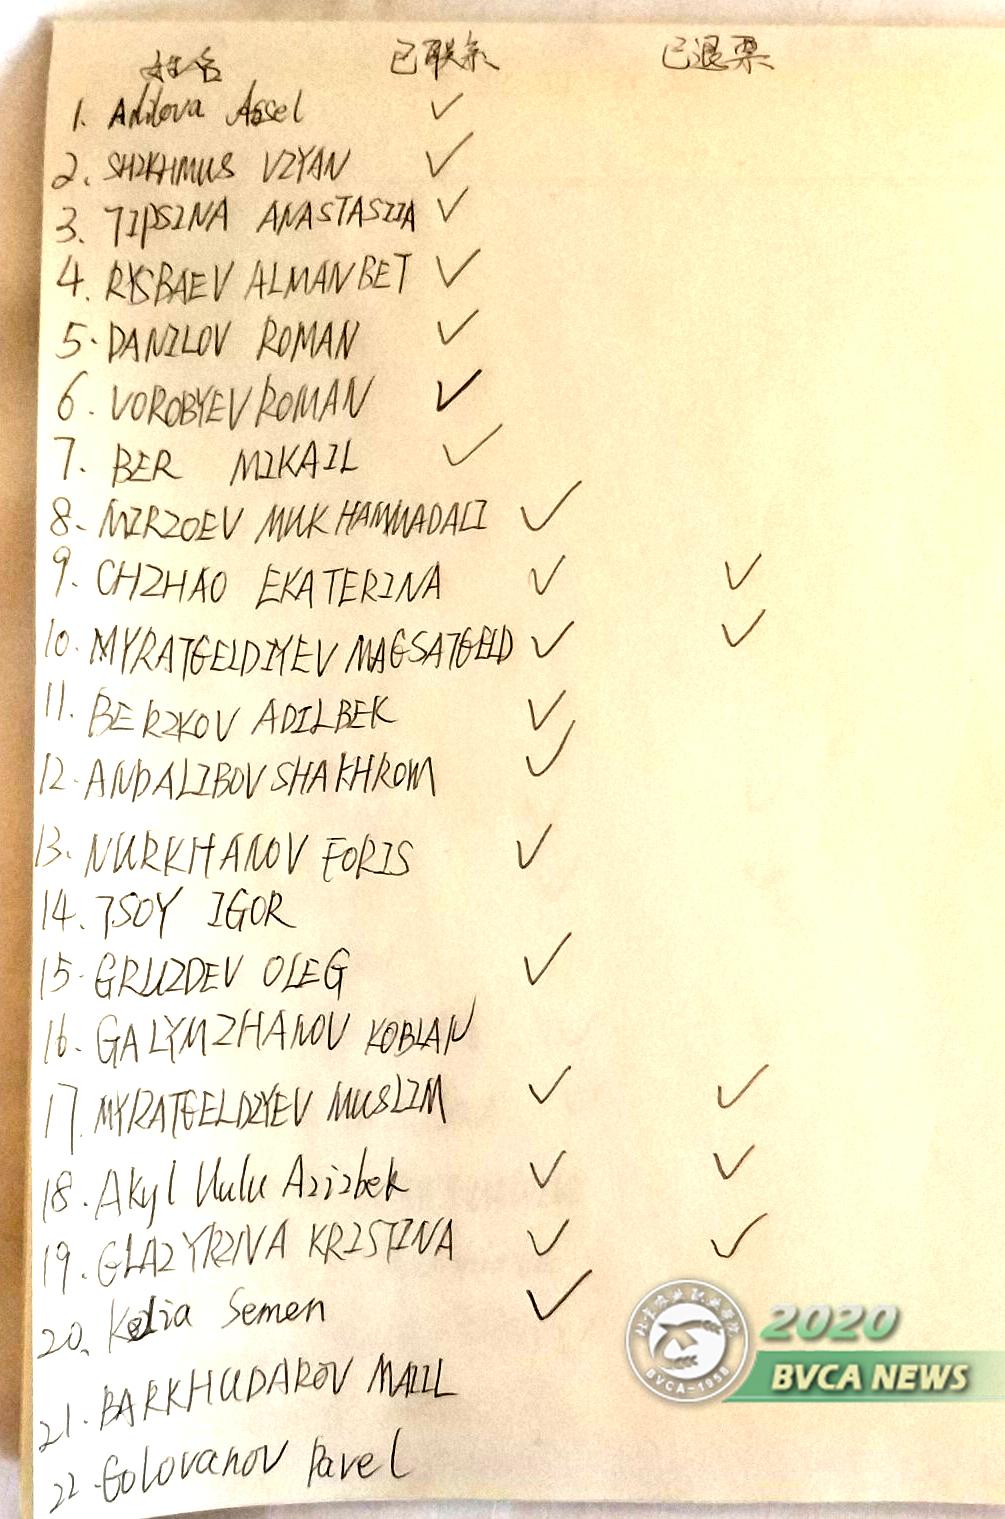 姓名 已联系 已退票
1. Adilova Assel ✓
2. SHIKHMUS VZYAN ✓
3. TIPSINA ANASTASIIA ✓
4. RYSBAEV ALMANBET ✓
5. DANILOV ROMAN ✓
6. VOROBYEV ROMAN ✓
7. BER MIKAIL ✓
8. MIRZOEV MUKHAMMADALI ✓
9. CHZHAO EKATERINA ✓ ✓
10. MYRATGELDIYEV MAGSATGELD ✓ ✓
11. BERIKOV ADILBEK ✓
12. ANDALIBOV SHAKHROM ✓
13. NURKHANOV FORIS ✓
14. TSOY IGOR
15. GRUZDEV OLEG ✓
16. GALYMZHANOV KOBLAN
17. MYRATGELDIYEV MUSLIM ✓ ✓
18. Akyl Uulu Azizbek ✓ ✓
19. GLAZYRINA KRISTINA ✓ ✓
20. Semen ✓
21. BARKHUDAROV
22. Golovanov Pavel
北京农业职业学院
BVCA-1958
2020
BVCA NEWS